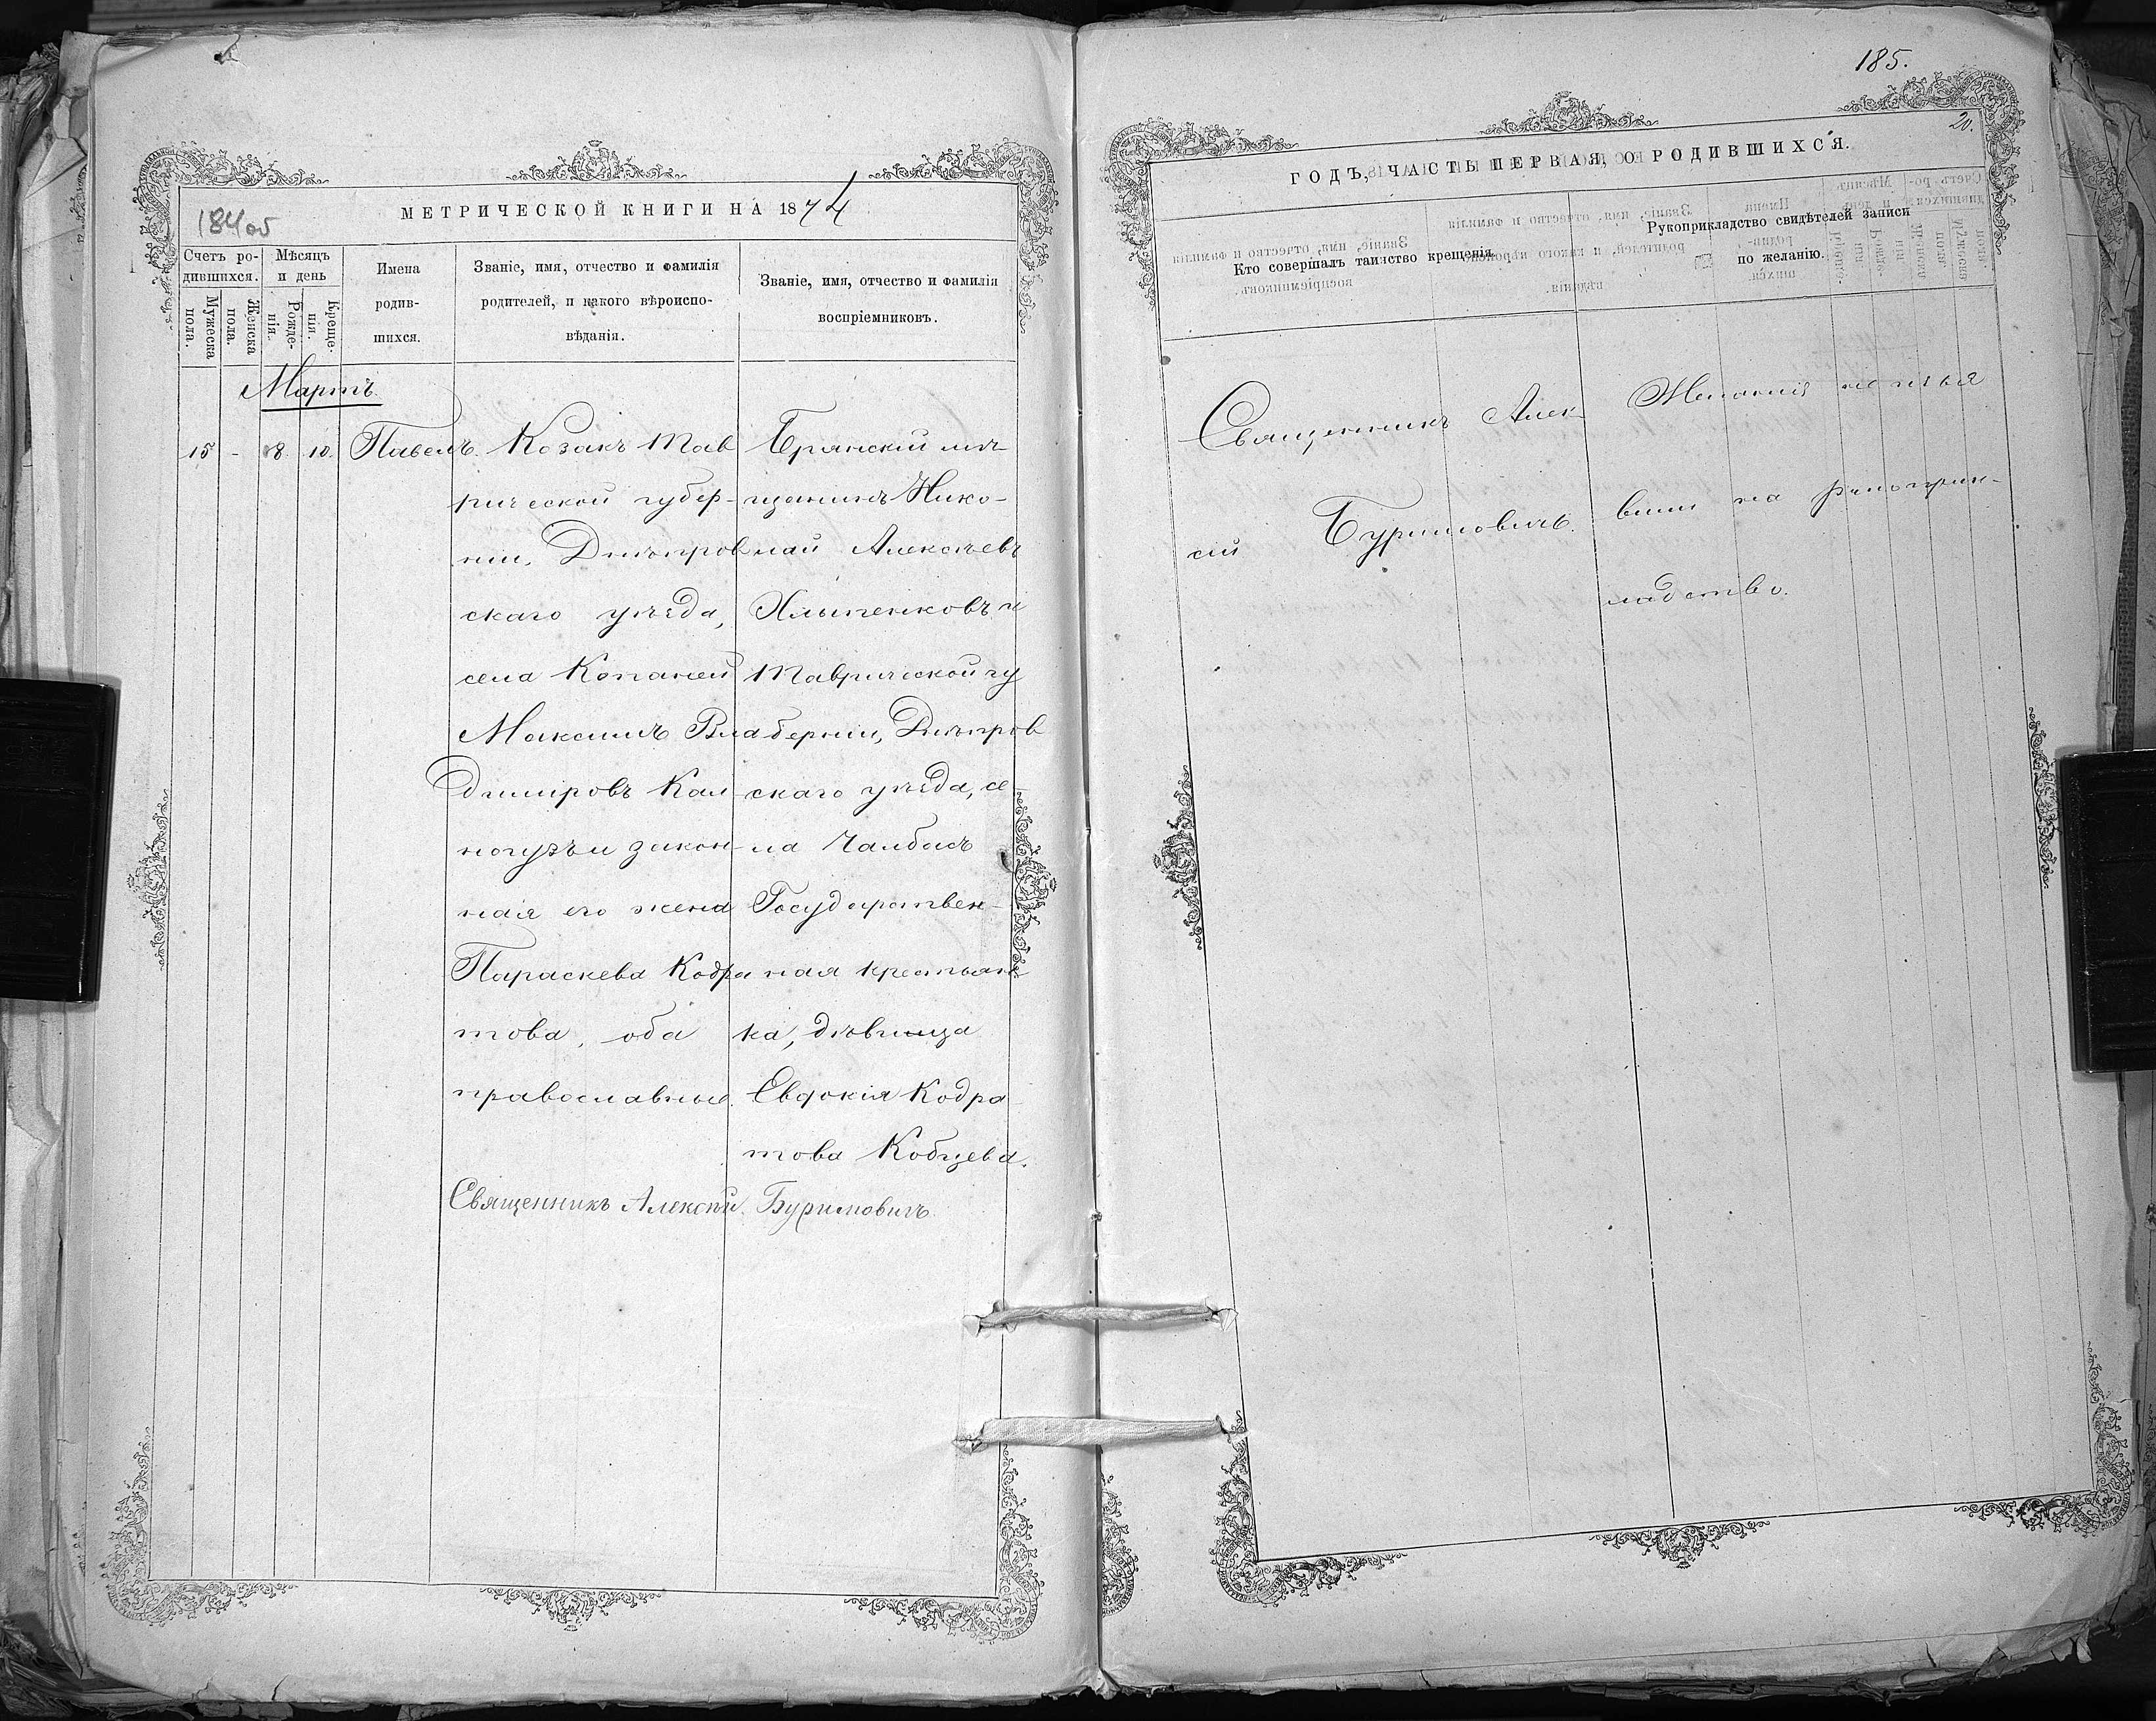 184об
МЕТРИЧЕСКОЙ КНИГИ НА 1874
Счетъ ро-
дившихся.
Мѣсяцъ
и день
Мужеска
пола.
Женска
пола.
Рожде-
нія.
Креще-
нія.
Имена
родив-
шихся.
Званіе, имя, отчество и фамилія
родителей, и какого вѣроиспо-
вѣданія.
Званіе, имя, отчество и фамилія
воспріемниковъ.
Мартъ
15 - 8. 10. Павелъ.
Козакъ Тав
рической губер-
ніи, Днѣпров
скаго уѣзда,
села Копаней
Максимъ Вла
диміровъ Кал
ногузъ и закон-
ная его жена
Параскева Кодра
това, оба
православные.
Брянскій мѣ-
щанинъ Нико-
лай Алексѣевъ
Хлыпенковъ и
Таврической гу
берніи, Днѣпров
скаго уѣзда, се-
ла Чалбасъ
Государствен-
ная крестьян-
ка, дѣвица
Евдокія Кодра-
това Кобцева.
Священникъ Алексій Буримовичъ
185.
20.
ГОДЪ, ЧАСТЬ ПЕРВАЯ, О РОДИВШИХСЯ.
Кто совершалъ таинство крещенія.
Рукоприкладство свидѣтелей записи
по желанію.
Священникъ Алек-
сій Буримовичъ.
Желанія не изъя
вили на рукоприк-
ладство.